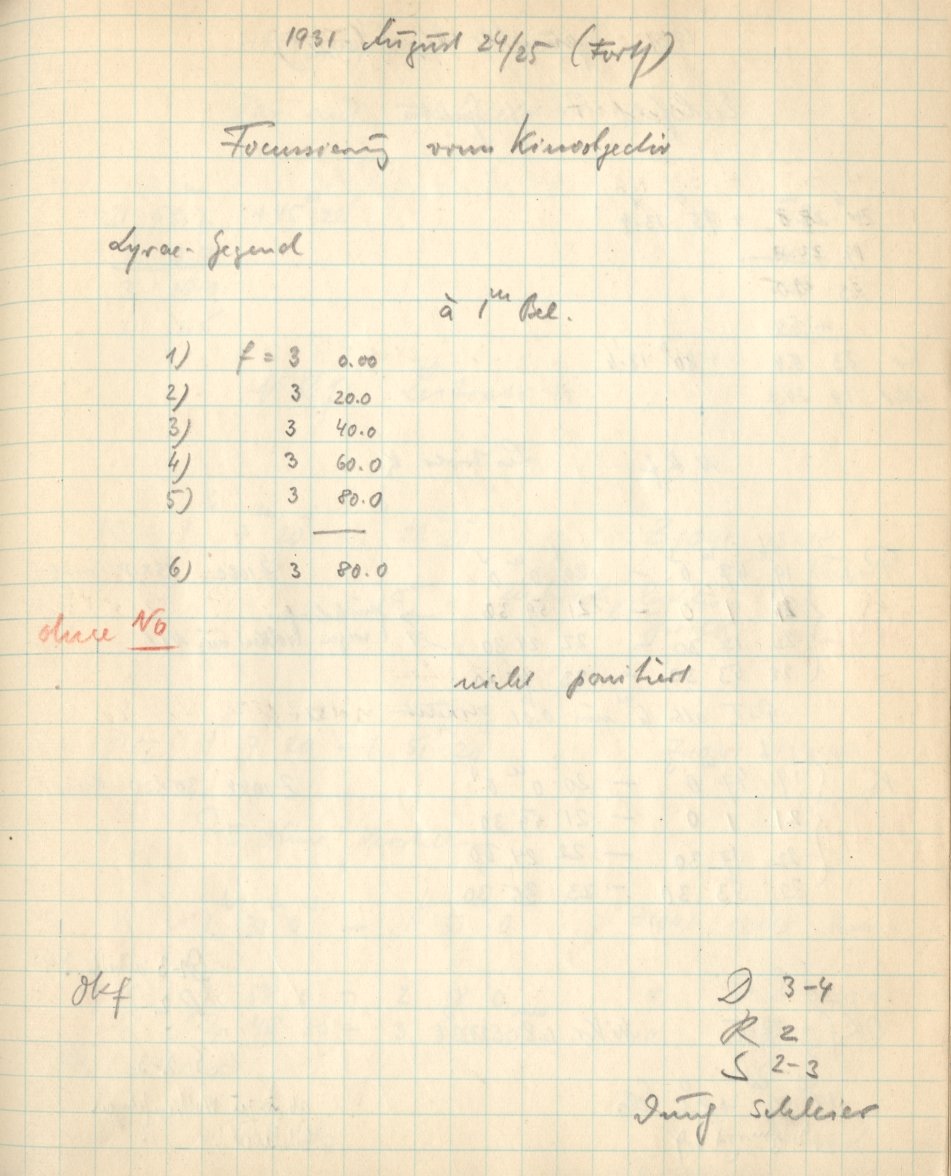 1931 August 24/25 (Forts)
Focussierung vom Kinoobjectiv
Lyrae-Gegend
à 1m Bel.
1) f = 3 0.00
2) 3 20.0
3) 3 40.0
4) 3 60.0
5) 3 80.0
6) 3 80.0
ohne No
nicht
dkf
D 3-4
R 2
S 2-3
Dunst Schleier